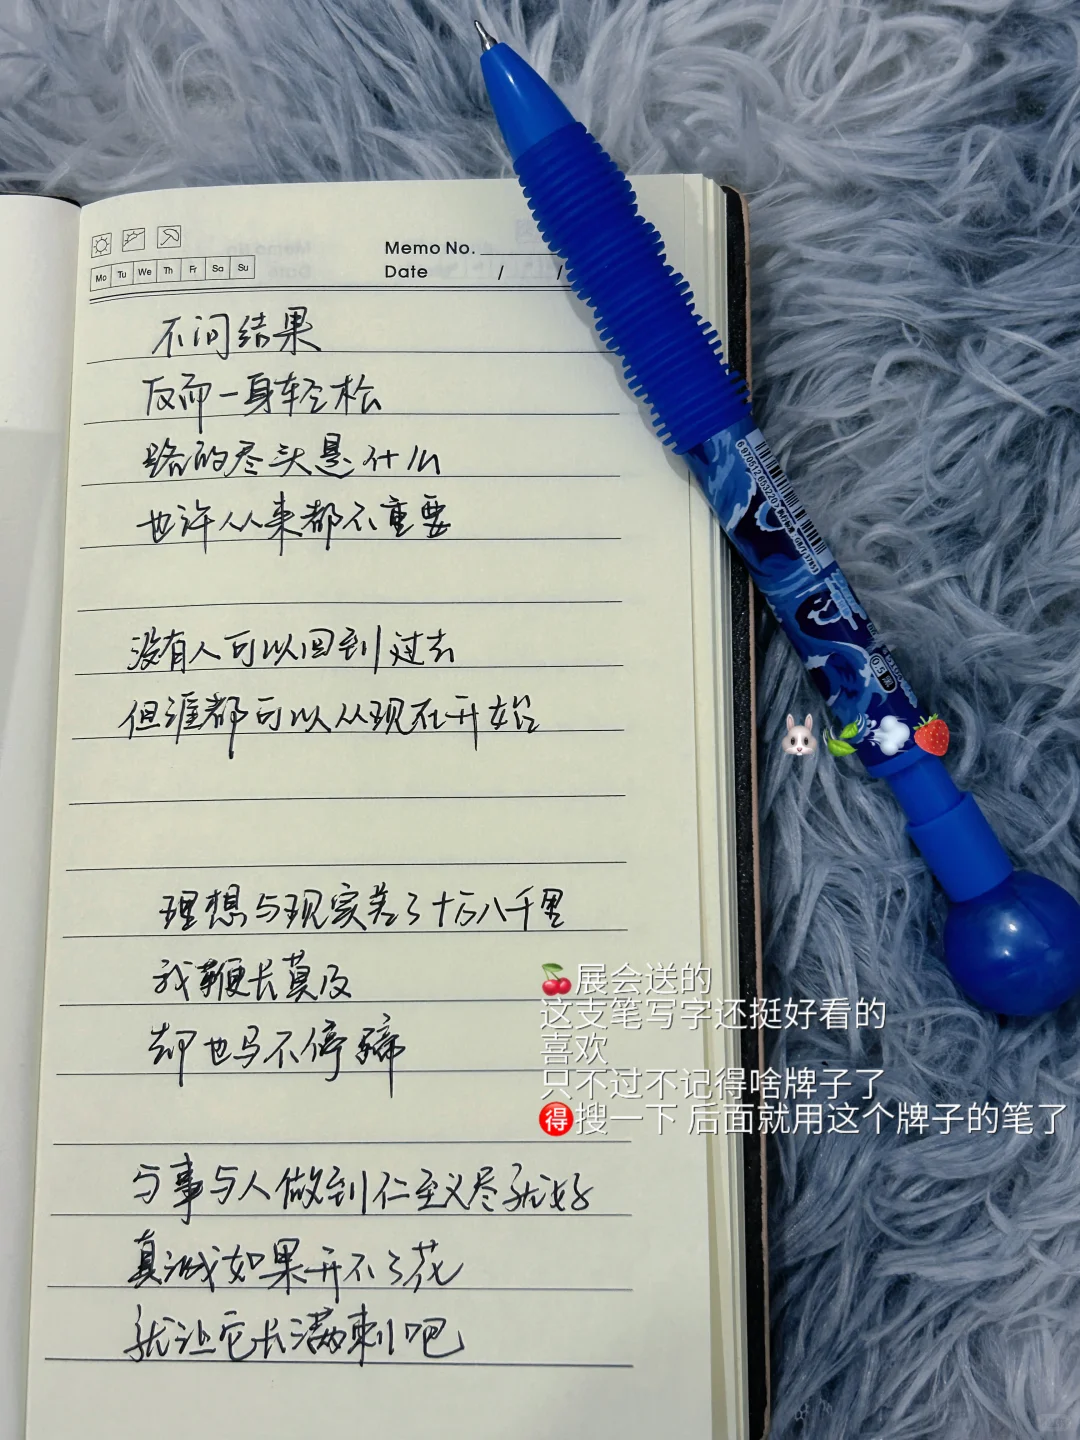 Memo No.
Mo Tu We Th Fr Sa Su
Date / /
不问结果
反而一身轻松
路的尽头是什么
也许从来都不重要
没有人可以回到过去
但谁都可以从现在开始
理想与现实差了十万八千里
我鞭长莫及
却也马不停蹄
与事与人做到仁至义尽就好
真诚如果开不了花
就让它长满刺吧
6 970512 653220
0.5 黑
🐰🍃💨🍓
🍒展会送的
这支笔写字还挺好看的
喜欢
只不过不记得啥牌子了
🉐搜一下 后面就用这个牌子的笔了